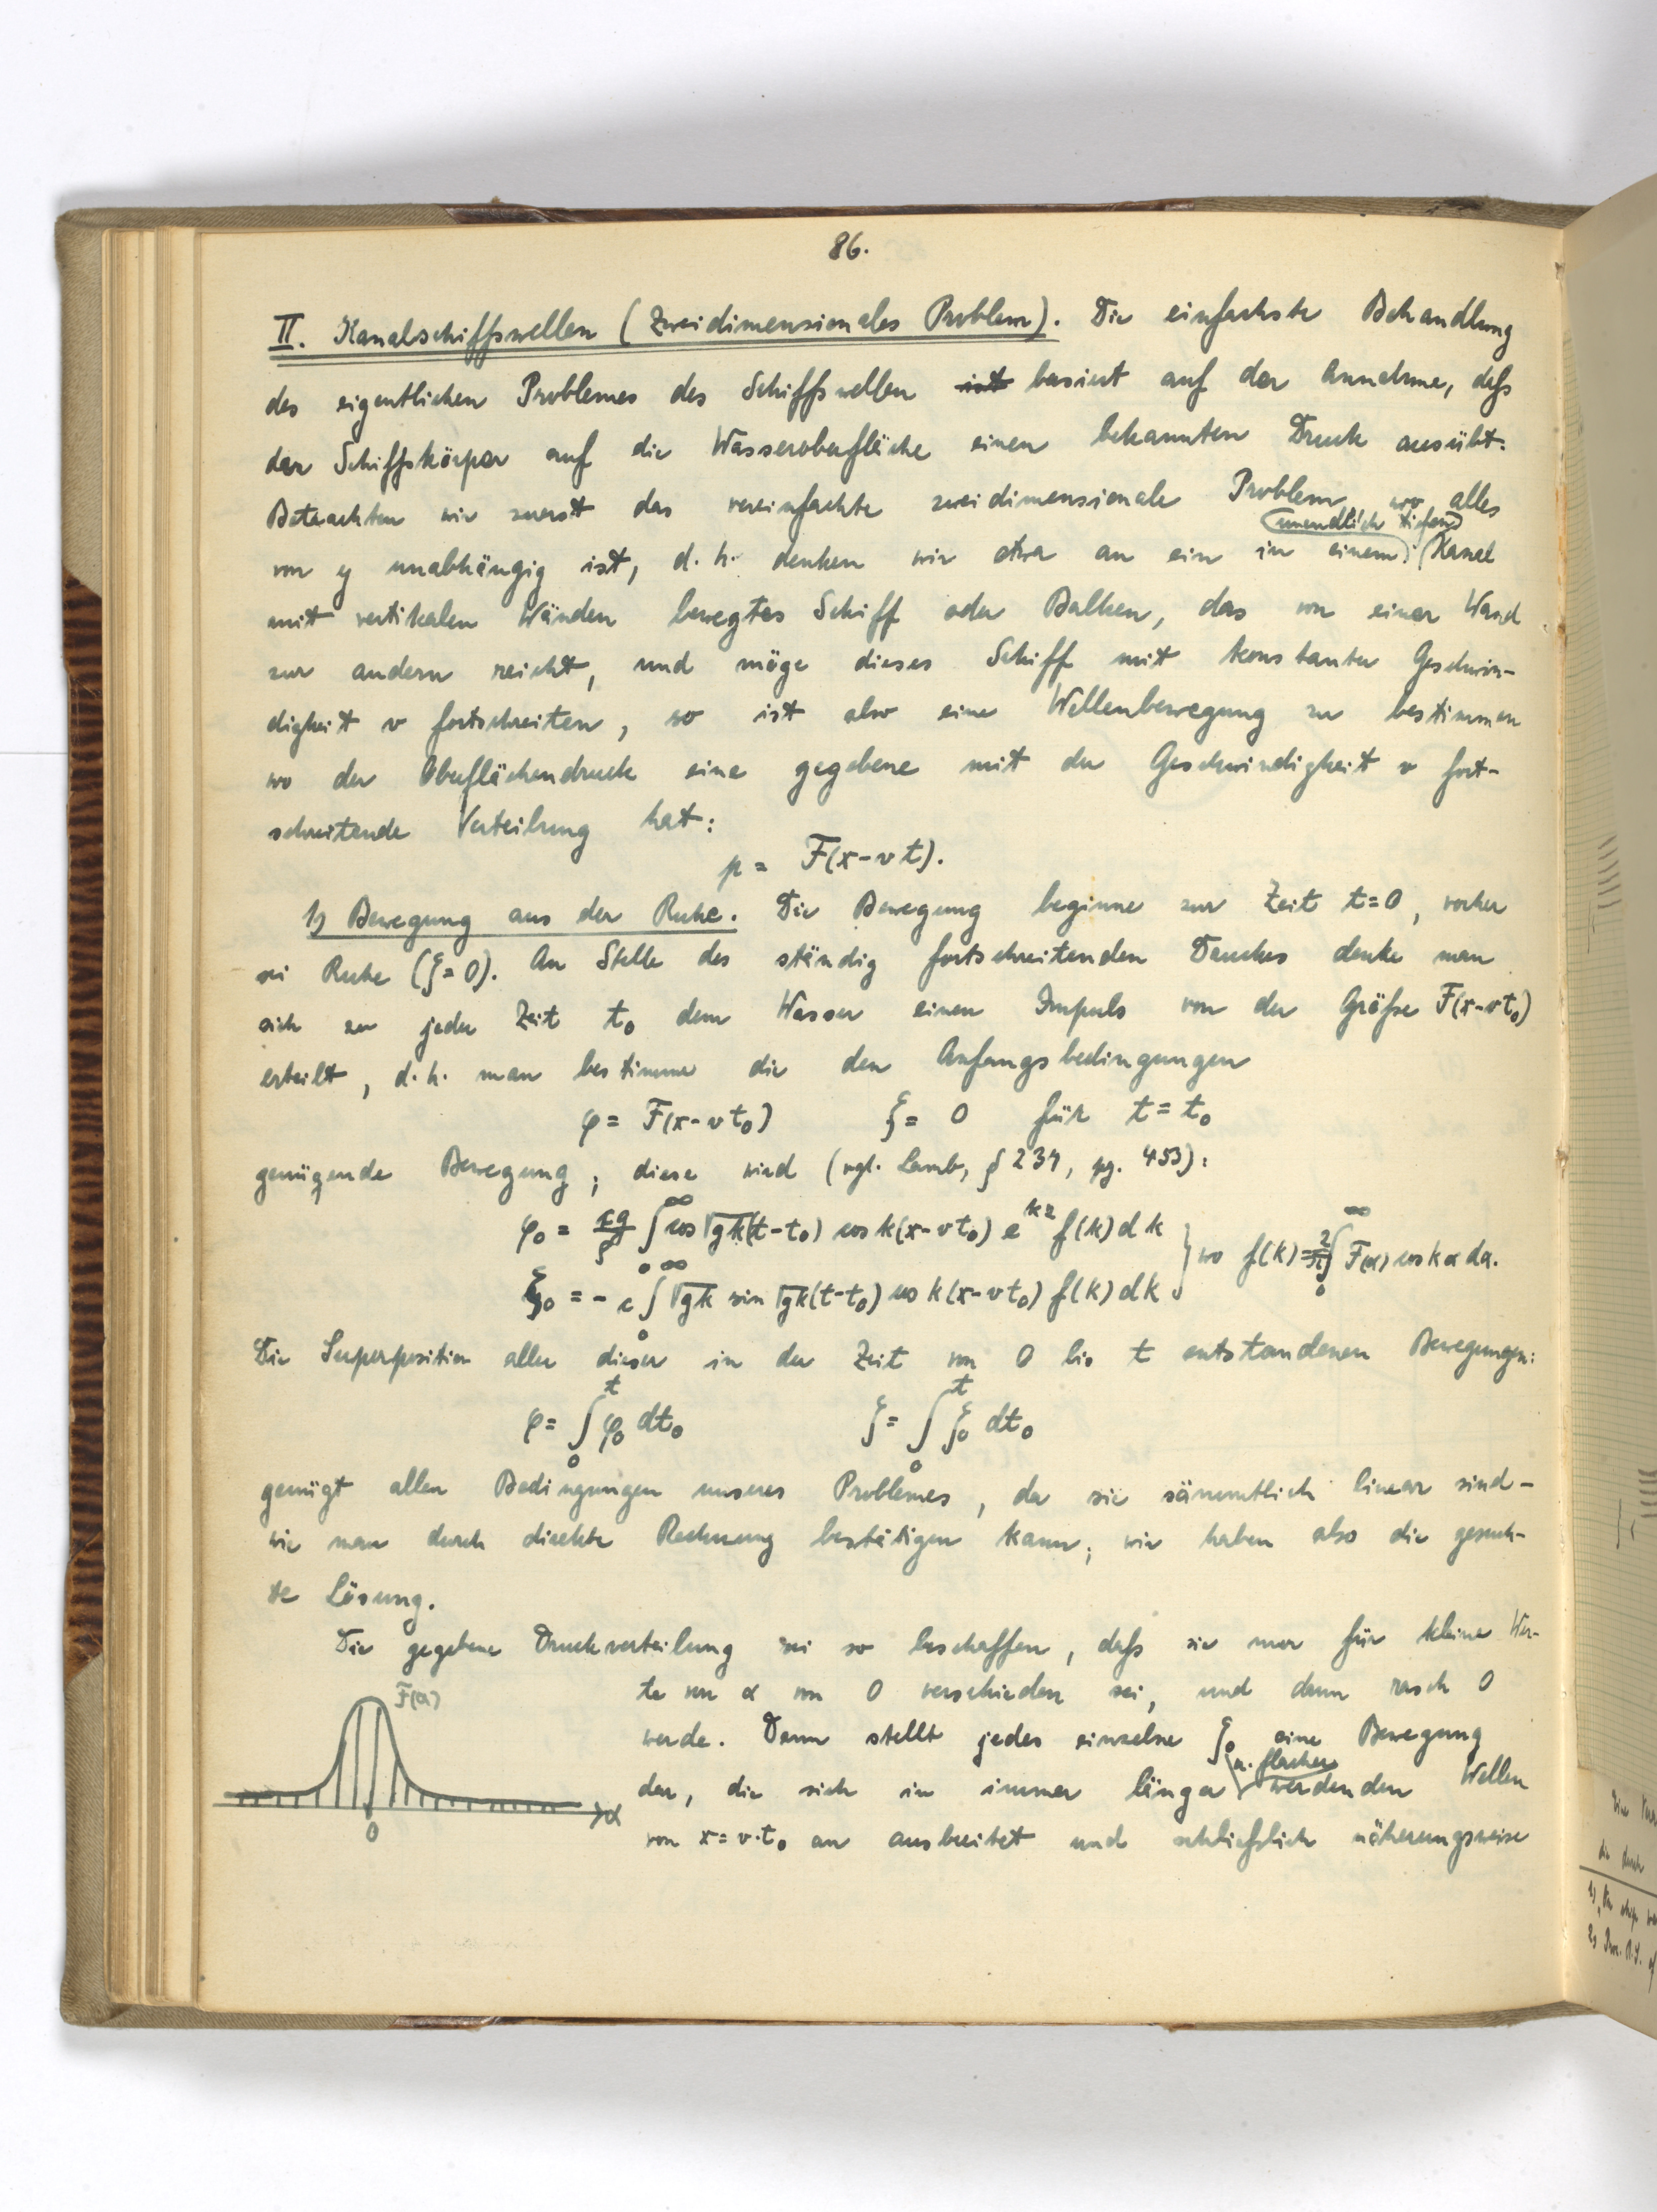 86.
II. Kanalschiffswellen (Zweidimensionales Problem). Die einfachste Behandlung
des eigentlichen Problemes des Schiffswellen ist basiert auf der Annahme, daß
der Schiffskörper auf die Wasseroberfläche einen bekannten Druck ausübt.
Betrachten wir zuerst das vereinfachte zweidimensionale Problem, wo alles
(unendlich tiefen)
von y unabhängig ist, d.h. denken wir etwa an ein in einem Kanal
mit vertikalen Wänden bewegtes Schiff oder Balken, das von einer Wand
zur andern reicht, und möge dieses Schiff mit konstanter Geschwin-
digkeit v fortschreiten, so ist also eine Wellenbewegung zu bestimmen
wo der Oberflächendruck eine gegebene mit der Geschwindigkeit v fort-
schreitende Verteilung hat:
p = F(x-vt).
1) Bewegung aus der Ruhe. Die Bewegung beginne zur Zeit t=0, vorher
sei Ruhe (ζ=0). An Stelle des ständig fortschreitenden Druckes denke man
sich zu jeder Zeit t₀ dem Wasser einen Impuls von der Größe F(x-vt₀)
erteilt, d.h. man bestimme die den Anfangsbedingungen
φ = F(x-vt₀) ζ = 0 für t = t₀
genügende Bewegung; diese wird (vgl. Lamb, § 239, pg. 453):
φ₀ = ∫₀^∞ cos √gk(t-t₀) cos k(x-vt₀) e^{kz} f(k) dk
ζ₀ = - c ∫₀^∞ √gk sin √gk(t-t₀) cos k(x-vt₀) f(k) dk } wo f(k) = 2/π ∫₀^∞ F(α) cos kα dα.
Die Superposition aller dieser in der Zeit von 0 bis t entstandenen Bewegungen:
φ = ∫₀^t φ₀ dt₀ ζ = ∫₀^t ζ₀ dt₀
genügt allen Bedingungen unseres Problemes, da sie sämmtlich linear sind -
wie man durch direkte Rechnung bestätigen kann; wir haben also die gesuch-
te Lösung.
Die gegebene Druckverteilung sei so beschaffen, daß sie nur für kleine Wer-
te von α von 0 verschieden sei, und dann rasch 0
werde. Dann stellt jedes einzelne ζ₀ eine Bewegung
u. flacher
dar, die sich in immer länger werdenden Wellen
von x = v·t₀ an ausbreitet und schließlich näherungsweise
F(α)
0
α